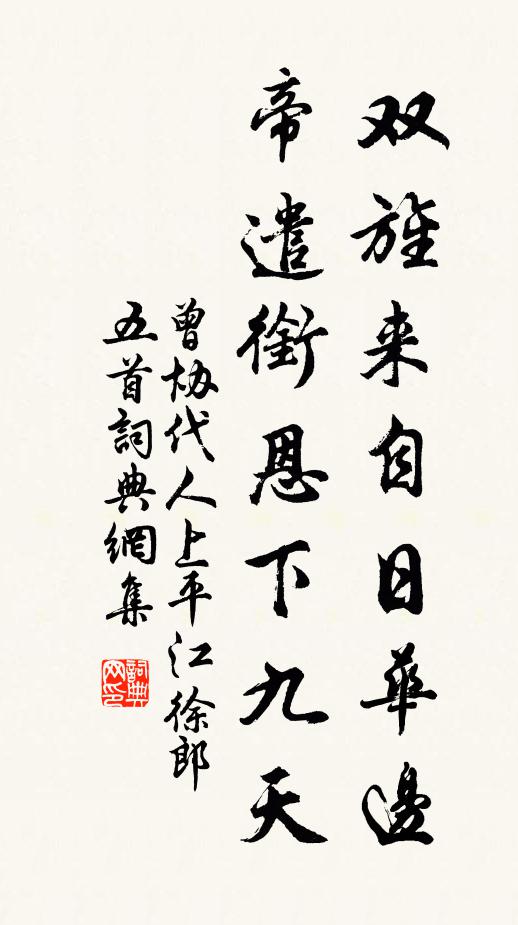 双旌来自日华邊
帝遣銜恩下九天
曾协代人上平江徐郎
五首詞典網集
詞典网印